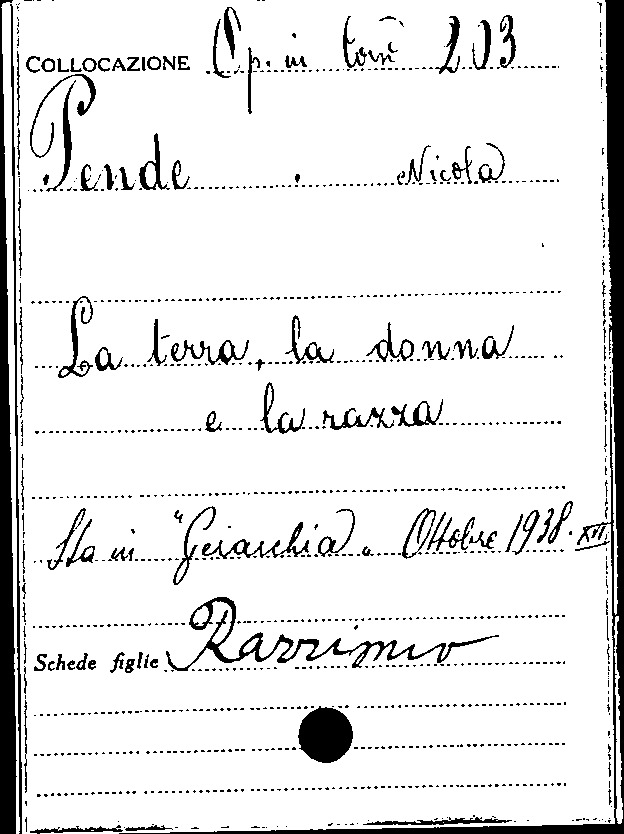 COLLOCAZIONE Op. in 203
Pende . Nicola
La terra, la donna
e la razza
Sta in "Gerarchia" Ottobre 1938. XVI
Schede figlie Razzismo